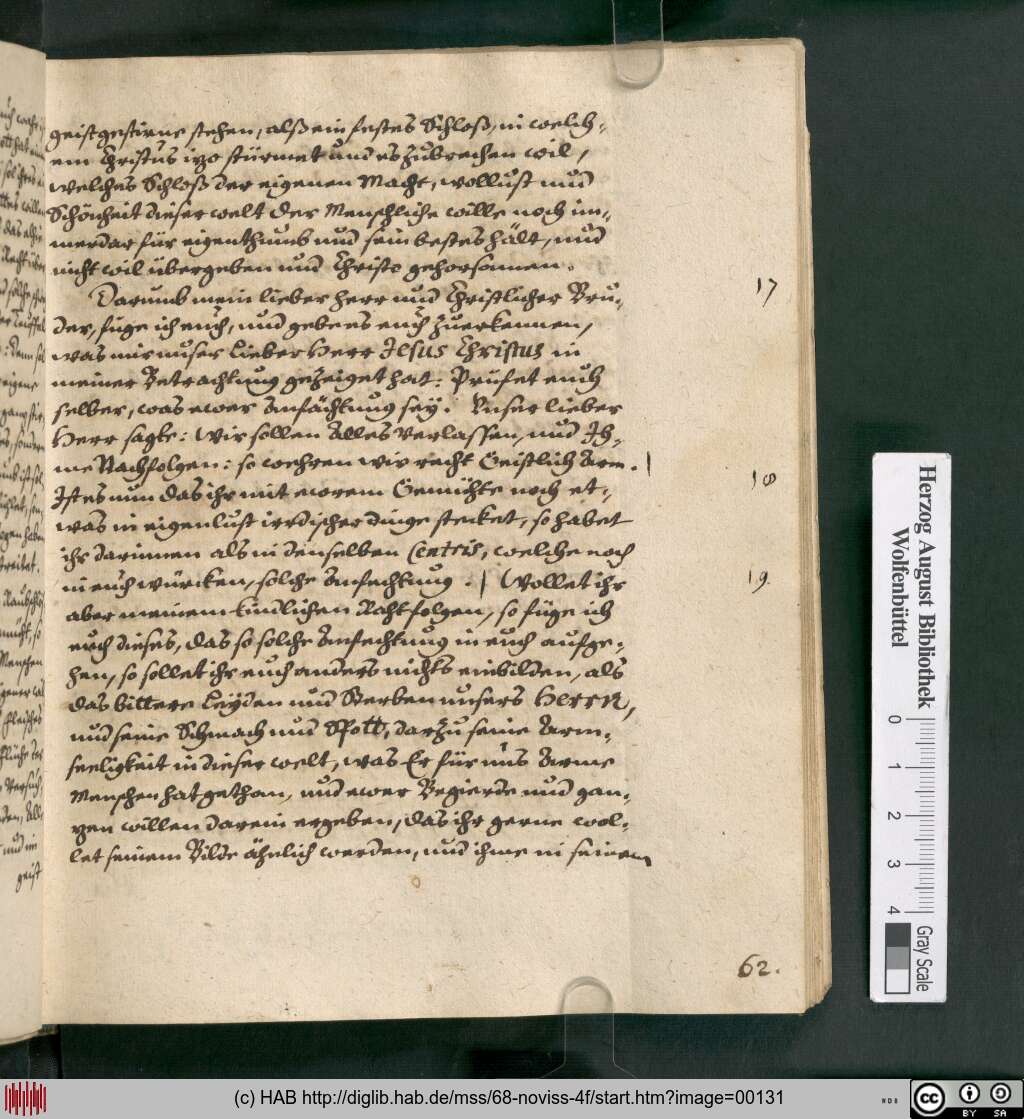 geistgestirne stehen, alß ein festes Schloß, in welch-
em Christus itzo stürmet und es zubrechen wil,
welches Schloß der eigenen Macht, wollust und
Schönheit dieser welt der Menschliche wille noch im-
merdar für eigenthumb und sein bestes hält, und
nicht wil übergeben und Christo gehorsamen.
Darumb mein lieber Herr und Christlicher Bru-
17
der, füge ich euch, und gebe es euch zuerkennen,
was mir unser Lieber Herr Jesus Christus in
meiner Betrachtung gezeiget hat: Prüfet euch
selber, was ewer Anfächtung sey. Unser lieber
Herr sagte: Wir sollen Alles verlassen, und Ih-
me Nachfolgen: so wehren wir recht Geistlich Arm. |
18
Ist es nun das ihr mit ewrem Gemühte noch et-
was in eigenlust irrdischer dinge stecket, so habet
ihr darinnen als in denselben Centris, welche noch
in euch würcken, solche Anfechtung. | Wollet ihr
19.
aber meinem kindlichen Raht folgen, so füge ich
euch dieses, das so solche Anfechtung in euch aufge-
hen, so sollet ihr euch anders nichts einbilden, als
das bittere Leyden und Sterben unsers Herrn,
und seine Schmach und Spott, darzu seine Arm-
seeligkeit in dieser welt, was Er für uns Arme
Menschen hat gethan, und ewer Begierde und gan-
tzen willen darein ergeben, das ihr gerne wol-
let seinem Bilde ähnlich werden, und ihme in seinem
62.
geist
Herzog August Bibliothek
Wolfenbüttel
0 1 2 3 4
Gray Scale
(c) HAB http://diglib.hab.de/mss/68-noviss-4f/start.htm?image=00131
cc BY SA